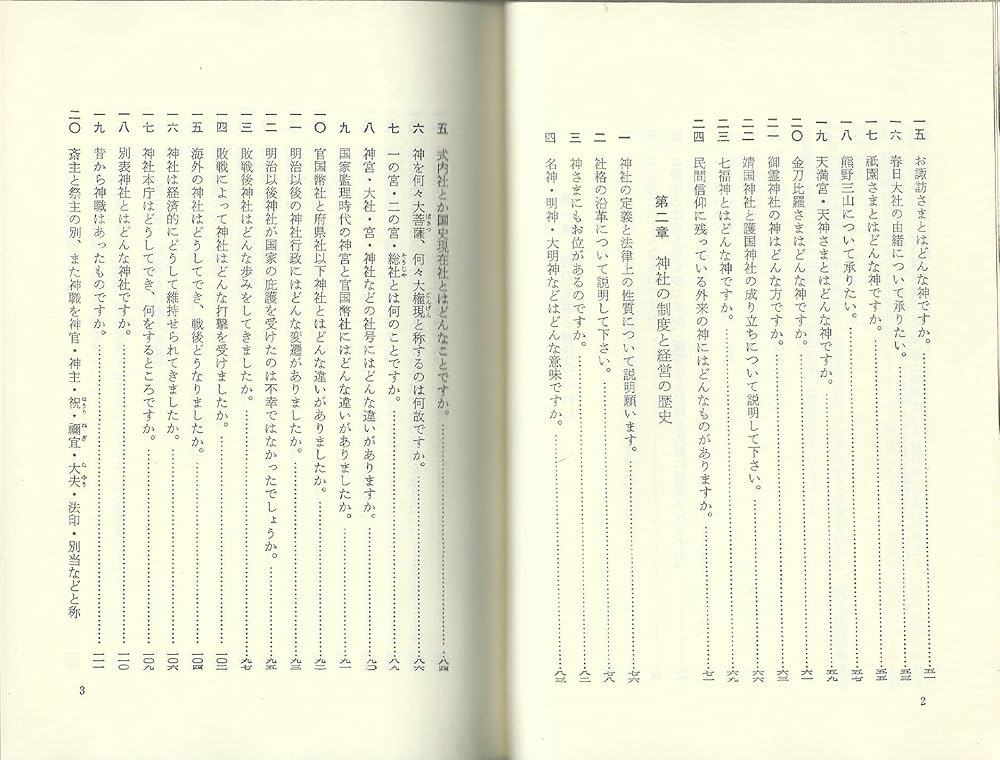 一五　お諏訪さまとはどんな神ですか。……五一
一六　春日大社の由緒について承りたい。……五三
一七　祇園さまとはどんな神ですか。……五五
一八　熊野三山について承りたい。……五七
一九　天満宮・天神さまとはどんな神ですか。……五九
二〇　金刀比羅さまはどんな神ですか。……六一
二一　御霊神社の神はどんな方ですか。……六三
二二　靖国神社と護国神社の成り立ちについて説明して下さい。……六六
二三　七福神とはどんな神ですか。……六九
二四　民間信仰に残っている外来の神にはどんなものがありますか。……七一
第二章　神社の制度と経営の歴史
一　神社の定義と法律上の性質について説明願います。……七六
二　社格の沿革について説明して下さい。……七八
三　神さまにもお位があるのですか。……八二
四　名神・明神・大明神などはどんな意味ですか。……八三
2
五　式内社とか国史現在社とはどんなことですか。……八四
六　神を何々大菩薩、何々大権現と称するのは何故ですか。……八六
七　一の宮・二の宮・総社とは何のことですか。……八九
八　神宮・大社・宮・神社などの社号にはどんな違いがありますか。……九〇
九　国家監理時代の神宮と官国幣社にはどんな違いがありましたか。……九一
一〇　官国幣社と府県社以下神社とはどんな違いがありましたか。……九二
一一　明治以後の神社行政にはどんな変遷がありましたか。……九三
一二　明治以後神社が国家の庇護を受けたのは不幸ではなかったでしょうか。……九五
一三　敗戦後神社はどんな歩みをしてきましたか。……九七
一四　敗戦によって神社はどんな打撃を受けましたか。……一〇二
一五　海外の神社はどうしてでき、戦後どうなりましたか。……一〇四
一六　神社は経済的にどうして維持せられてきましたか。……一〇六
一七　神社本庁はどうしてでき、何をするところですか。……一〇九
一八　別表神社とはどんな神社ですか。……一一〇
一九　昔から神職はあったものですか。……一一一
二〇　斎主と祭主の別、また神職を神官・神主・祝・禰宜・大夫・法印・別当などと称
3